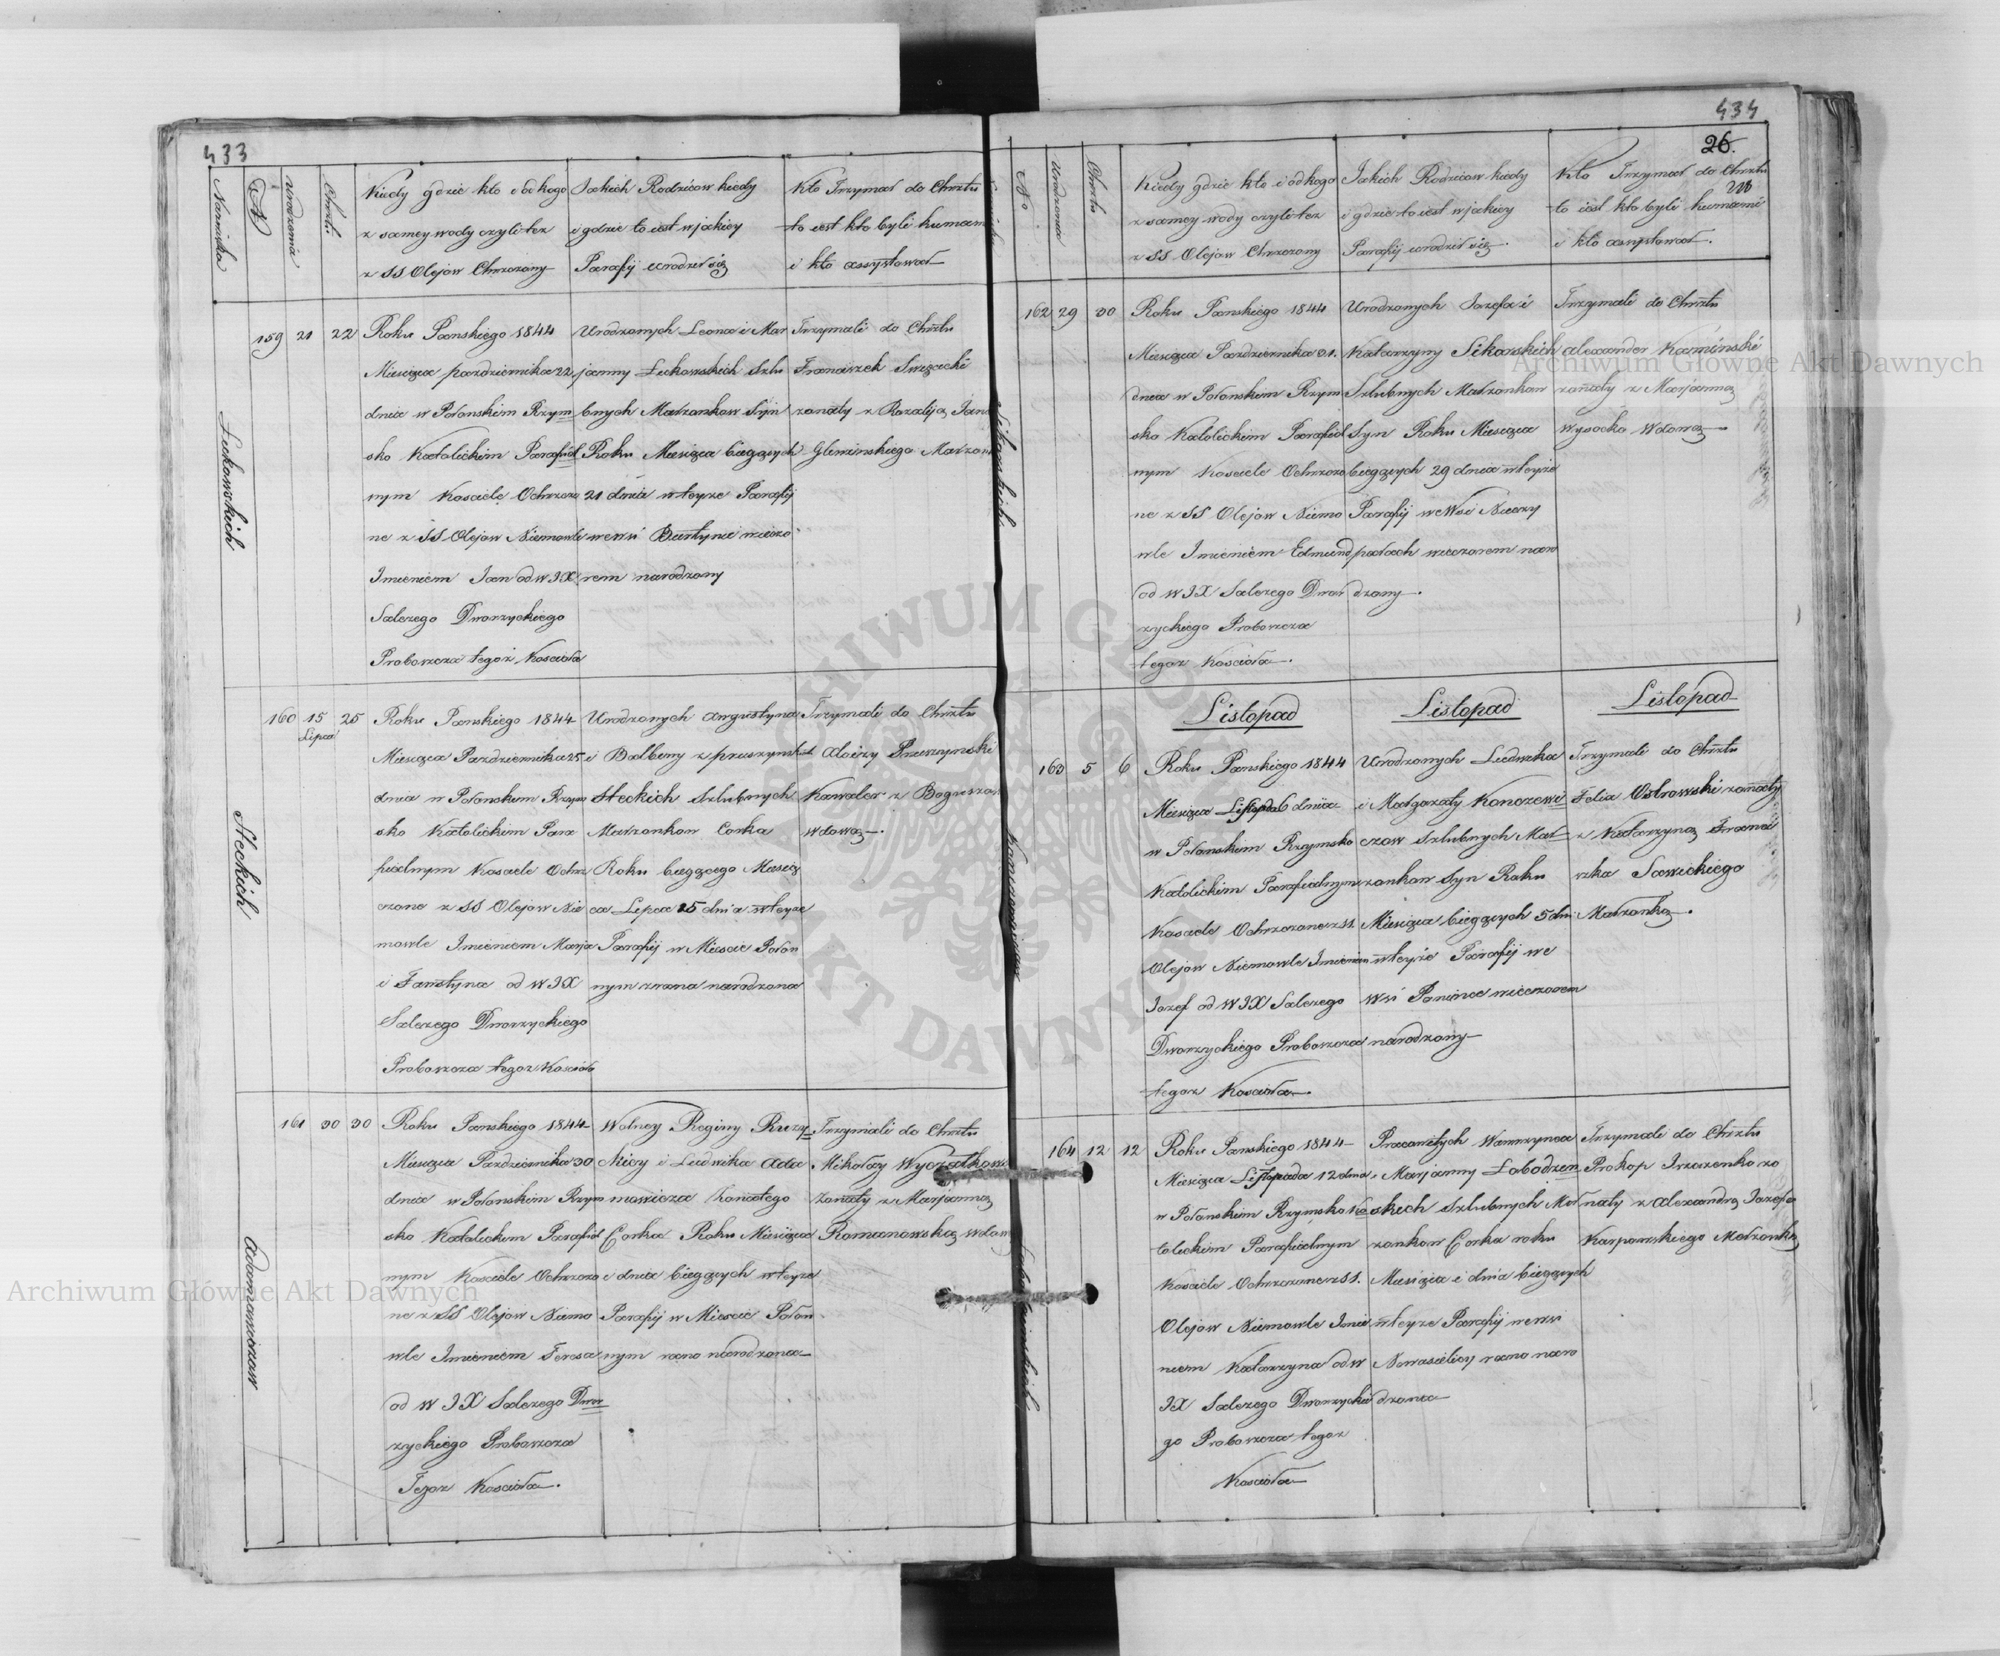 433
Nazwiska
N
urodzenia
Chrztu
Kiedy gdzie kto i od kogo
z samey wody czyli tez
z SS Olejow Chrzczony
Jakich Rodzicow kiedy
i gdzie to iest w jakiey
Parafij urodził się
Kto Trzymał do Chrztu
to iest kto byli kumami
i kto assystował
Lukowskich
159 21 22
Roku Panskiego 1844
Miesiąca pazdziernika 22
dnia w Połonskim Rzym
sko Katolickim Parafial
nym Kosciele Ochrzczo
ne z SS Olejow Niemowle
Imieniem Jan od W JX
Salezego Dworzyckiego
Proboszcza tegoż Koscioła
Urodzonych Leona i Mar
janny Lukowskich Szlu
bnych Małzonkow Syn
Roku Miesiąca biegących
21 dnia w teyze Parafij
we wsi Burtynie wieczo
rem narodzony
Trzymali do Chrztu
Franciszek Swięcicki
zonaty z Rozaliją Jana
Glinzinskiego Małzon
Steckich
160 15 25
Lipca
Roku Panskiego 1844
Miesiąca Pazdziernika 25
dnia w Połonskim Rzym
sko Katolickim Para
fialnym Kosciele Ochrz
czone z SS Olejow Nie
mowle Imieniem Marja
i Faustyna od W JX
Salezego Dworzyckiego
Proboszcza tegoz Kosciola
Urodzonych Augustyna
i Balbiny z pruszynskich
Steckich Szlubnych
Małzonkow Corka
Roku biegącego Miesią
ca Lipca 15 dnia w teyze
Parafij w Miescie Połon
nym zrana narodzona
Trzymali do Chrztu
Aloizy Pruszynski
Kawaler z Boguszow
wdową
Adamowiczow
161 30 30
Roku Panskiego 1844
Miesiąca Pazdziernika 30
dnia w Połonskim Rzym
sko Katolickim Parafial
nym Kosciele Ochrzczo
ne z SS Olejow Niemo
wle Imieniem Teresa
od W JX Salezego Dwor
zyckiego Proboszcza
Tegoz Kosciola.
Wolney Reginy Ruzy
ckiey i Ludwika Ada
mowicza Zonatego
Corka Roku Miesiąca
i dnia bieących w teyze
Parafij w Miescie Połon
nym rano narodzona
Trzymali do Chrztu
Mikołay Wyczałkows
Zonaty z Marjanną
Romanowską wdow
434
26.
No
Urodzenia
Chrztu
Kiedy gdzie kto i od kogo
z samey wody czyli tez
z SS Olejow Chrzczony
Jakich Rodzicow kiedy
i gdzie to iest w jakiey
Parafij urodził się.
Kto Trzymał do Chrztu
to iest kto byli kumami
i kto assystował.
Sikorskich
162 29 30
Roku Panskiego 1844
Miesiąca Pazdziernika 31.
dnia w Połonskim Rzym
sko Katolickim Parafial
nym Kosciele Ochrzczo
ne z SS Olejow Niemo
wle Imieniem Edmund
od W JX Salezego Dwor
zyckiego Proboszcza
tegoz Kosciola.
Urodzonych Jozefa i
Katarzyny Sikorskich
Szlubnych Małzonkow
Syn Roku Miesiąca
bieących 29 dnia w teyze
Parafij we Wsi Nieczy
parach wieczorem naro
dzony.
Trzymali do Chrztu
Alexander Kaminski
zonaty z Marjanną
wysocką Wdową
Listopad
Listopad
Listopad
163 5 6
Roku Panskiego 1844
Miesiąca Listopada 6 dnia
w Połonskim Rzymsko
Katolickim Parafialnym
Kosciele Ochrzczone z SS.
Olejow Niemowle Imieniem
Jozef od W JX Salezego
Dworzyckiego Proboszcza
tegoz Kosciola
Urodzonych Ludwika
i Małgozaty Konczewi
czow Szlubnych Mał
zonkow Syn Roku
Miesiąca bieących 5 dni
w teyze Parafij we
Wsi Panince wieczorem
narodzony
Trzymali do Chrztu
Felix Ostrowski zonaty
z Katarzyną Franci
szka Sawickiego
Małzonką.
164 12 12
Roku Panskiego 1844
Miesiąca Listopada 12 dnia
w Połonskim Rzymsko Ka
tolickim Parafialnym
Kosciele Ochrzczone z SS.
Olejow Niemowle Imie
niem Katarzyna od W
JX Salezego Dworzyckie
go Proboszcza tegoz
Kosciola
Pracowitych Wawrzynca
i Marjanny Łobodzin
skich Szlubnych Mał
zonkow Corka roku
Miesiąca i dnia bieących
w teyze Parafij we wsi
Nowosielicy rano naro
dzona
Trzymali do Chrztu
Prokop Irzczenko zo
naty z Alexandrą Jozefa
Karpowskiego Małzonką
Archiwum Główne Akt Dawnych
Archiwum Główne Akt Dawnych
ARCHIWUM GŁÓWNE AKT DAWNYCH